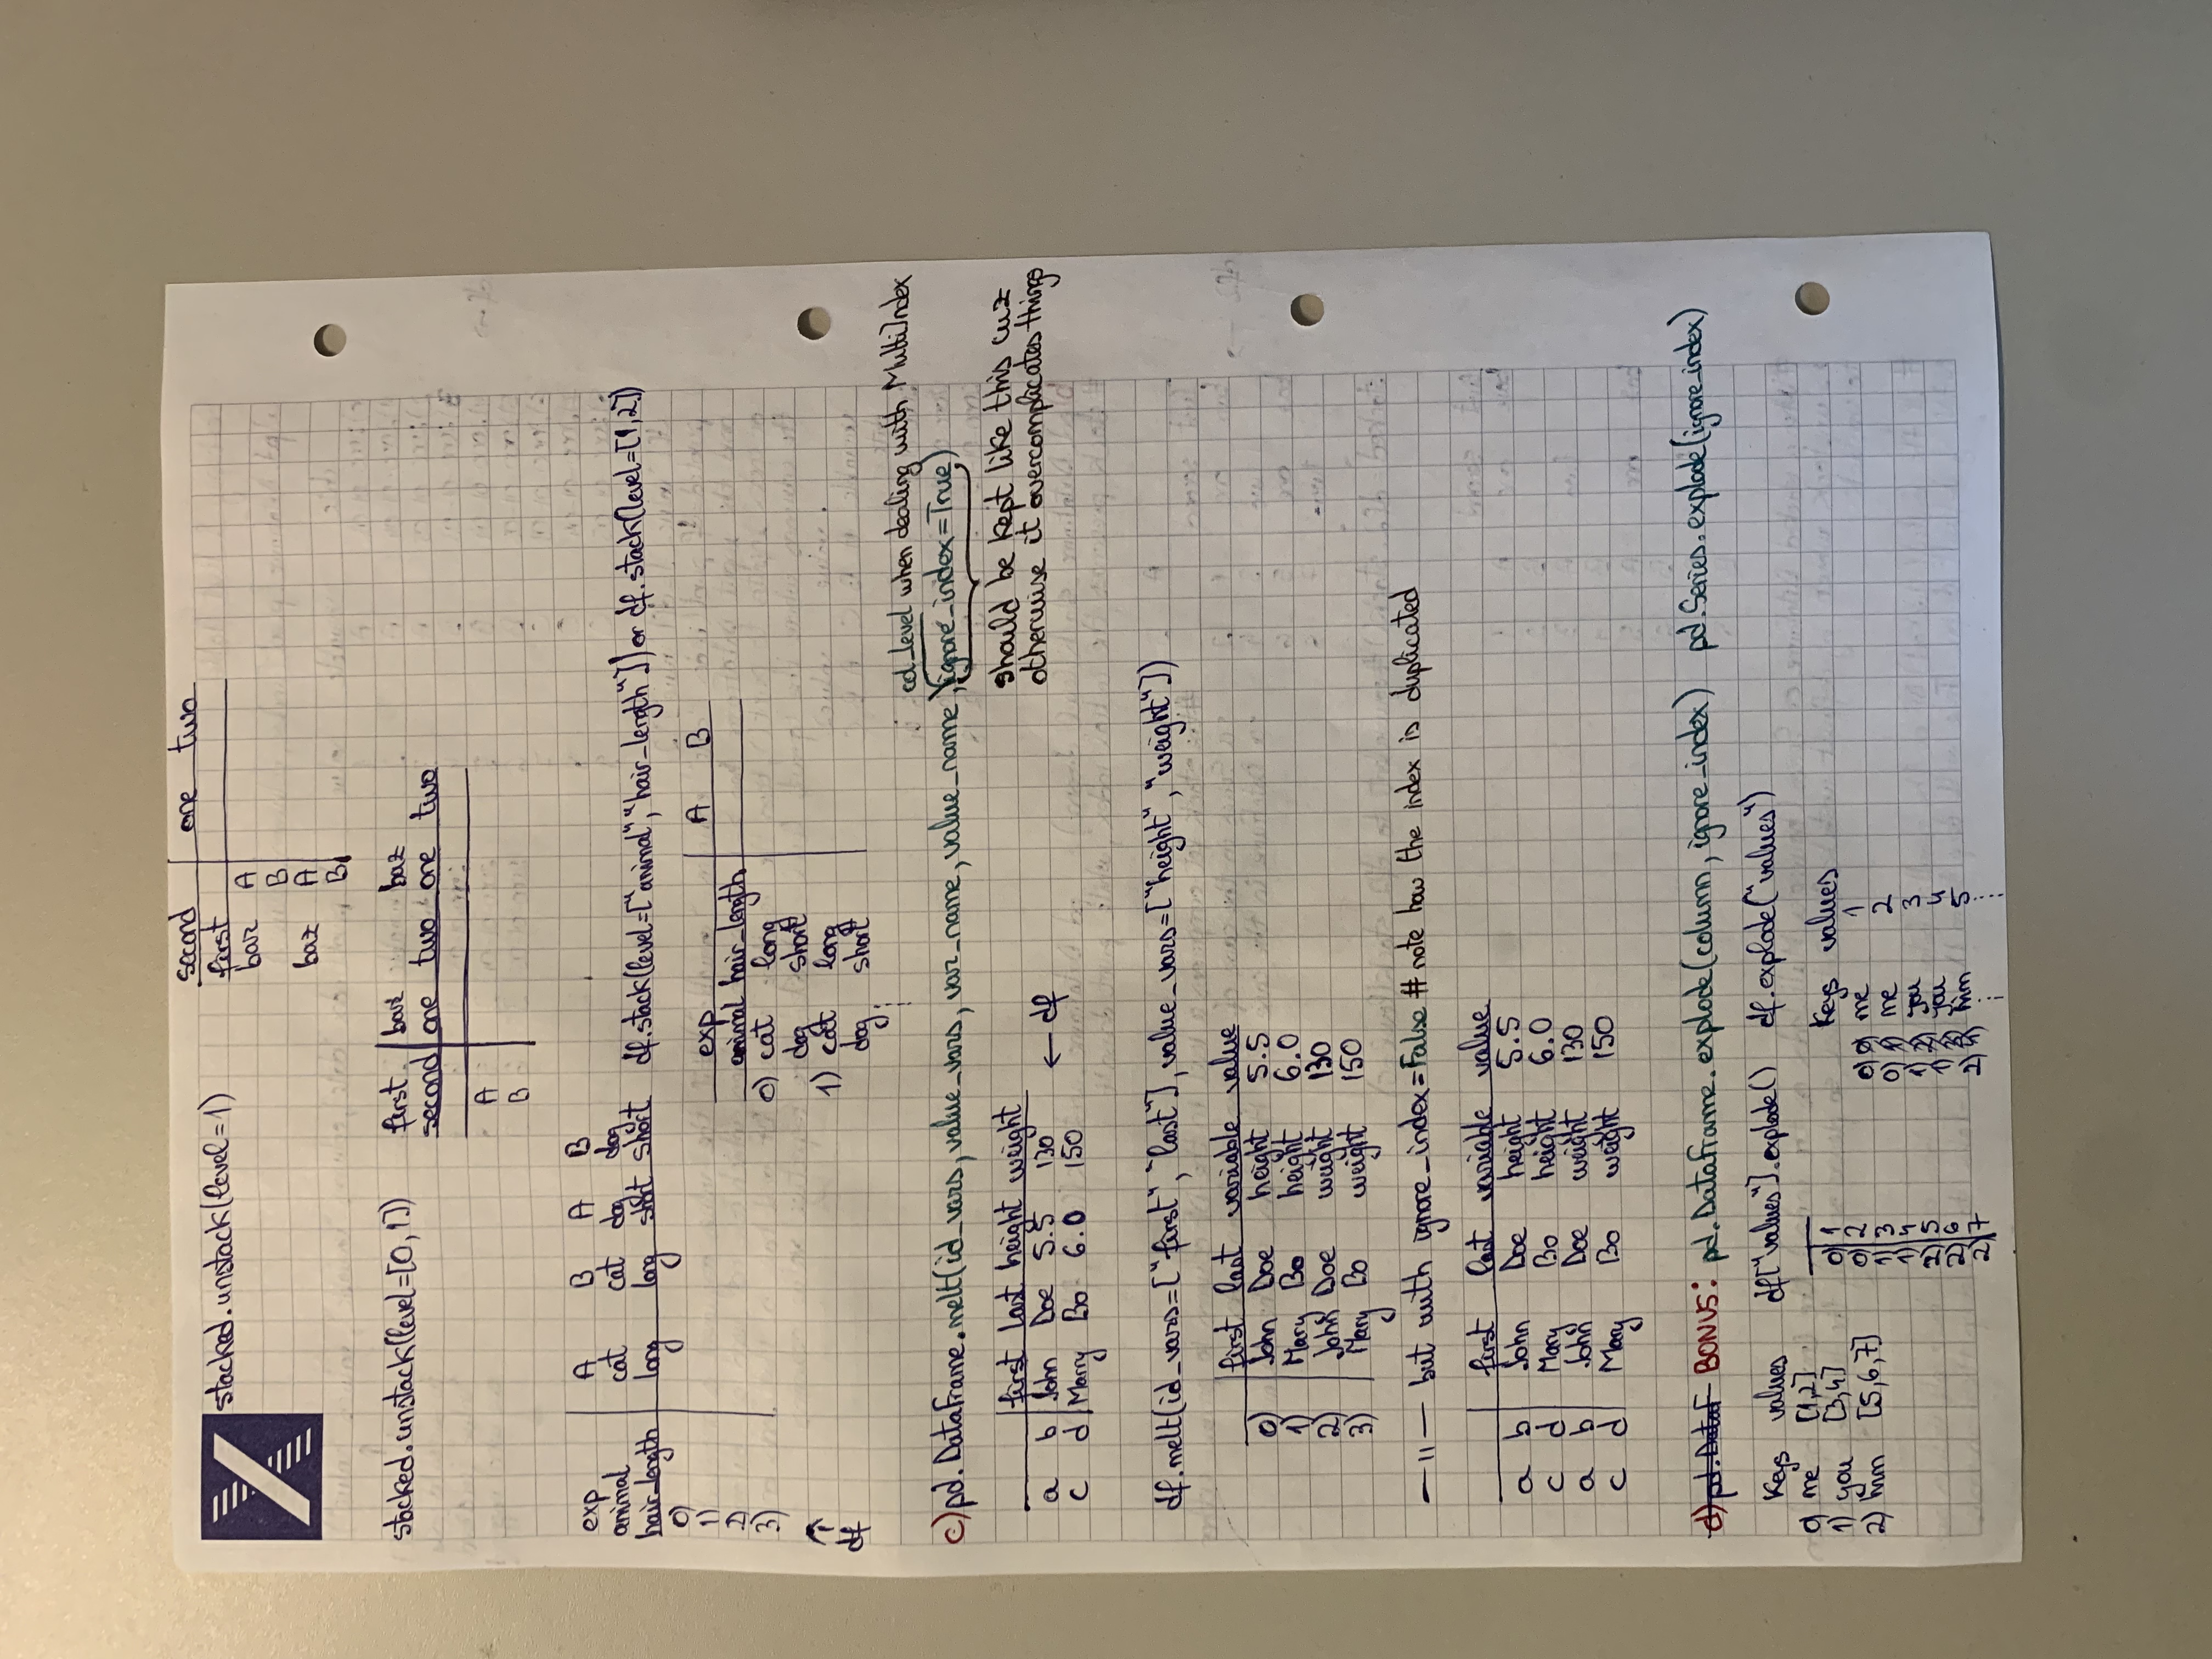 stacked.unstack(level=1)
second one two
first
bar A
B
baz A
B
stacked.unstack(level=[0,1])
first bar baz
second one two one two
A
B
exp A B A B
animal cat cat dog dog
hair_length long long short short
0)
1)
2)
3)
df
df.stack(level=["animal","hair_length"]) or df.stack(level=[1,2])
exp A B
animal hair_length
0) cat long
dog short
1) cat long
dog short
col_level when dealing with MultiIndex
c) pd.DataFrame.melt(id_vars, value_vars, var_name, value_name, ignore_index=True)
should be kept like this cuz
otherwise it overcomplicates things
first last height weight
a b John Doe 5.5 130 ← df
c d Marry Bo 6.0 150
df.melt(id_vars=["first", "last"], value_vars=["height", "weight"])
first last variable value
0) John Doe height 5.5
1) Mary Bo height 6.0
2) John Doe weight 130
3) Mary Bo weight 150
—11— but with ignore_index=False # note how the index is duplicated
first last variable value
a b John Doe height 5.5
c d Mary Bo height 6.0
a b John Doe weight 130
c d Mary Bo weight 150
d) pd.Dataf BONUS: pd.DataFrame.explode(column, ignore_index) pd.Series.explode(ignore_index)
Keys values
0) me [1,2]
1) you [3,4]
2) him [5,6,7]
df["values"].explode()
0) 1
0) 2
1) 3
1) 4
2) 5
2) 6
2) 7
df.explode("values")
Keys values
0) me 1
0) me 2
1) you 3
1) you 4
2) him 5